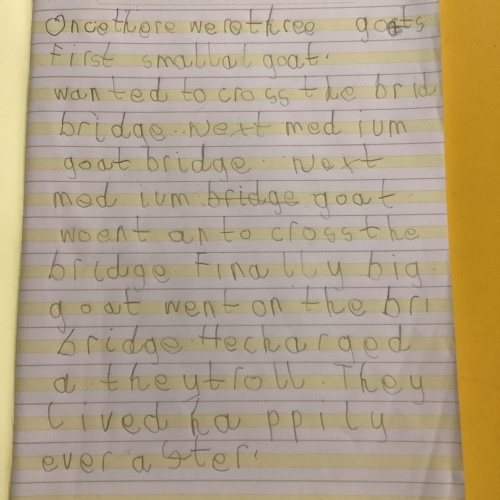 Once there were three goats
First smallal goat.
wanted to cross the brid
bridge. Next med ium
goat bridge. Next
med ium bridge goat
woent an to cross the
bridge. Finally big
goat went on the bri
bridge. He charged
a they troll. They
lived ha ppily
ever after.